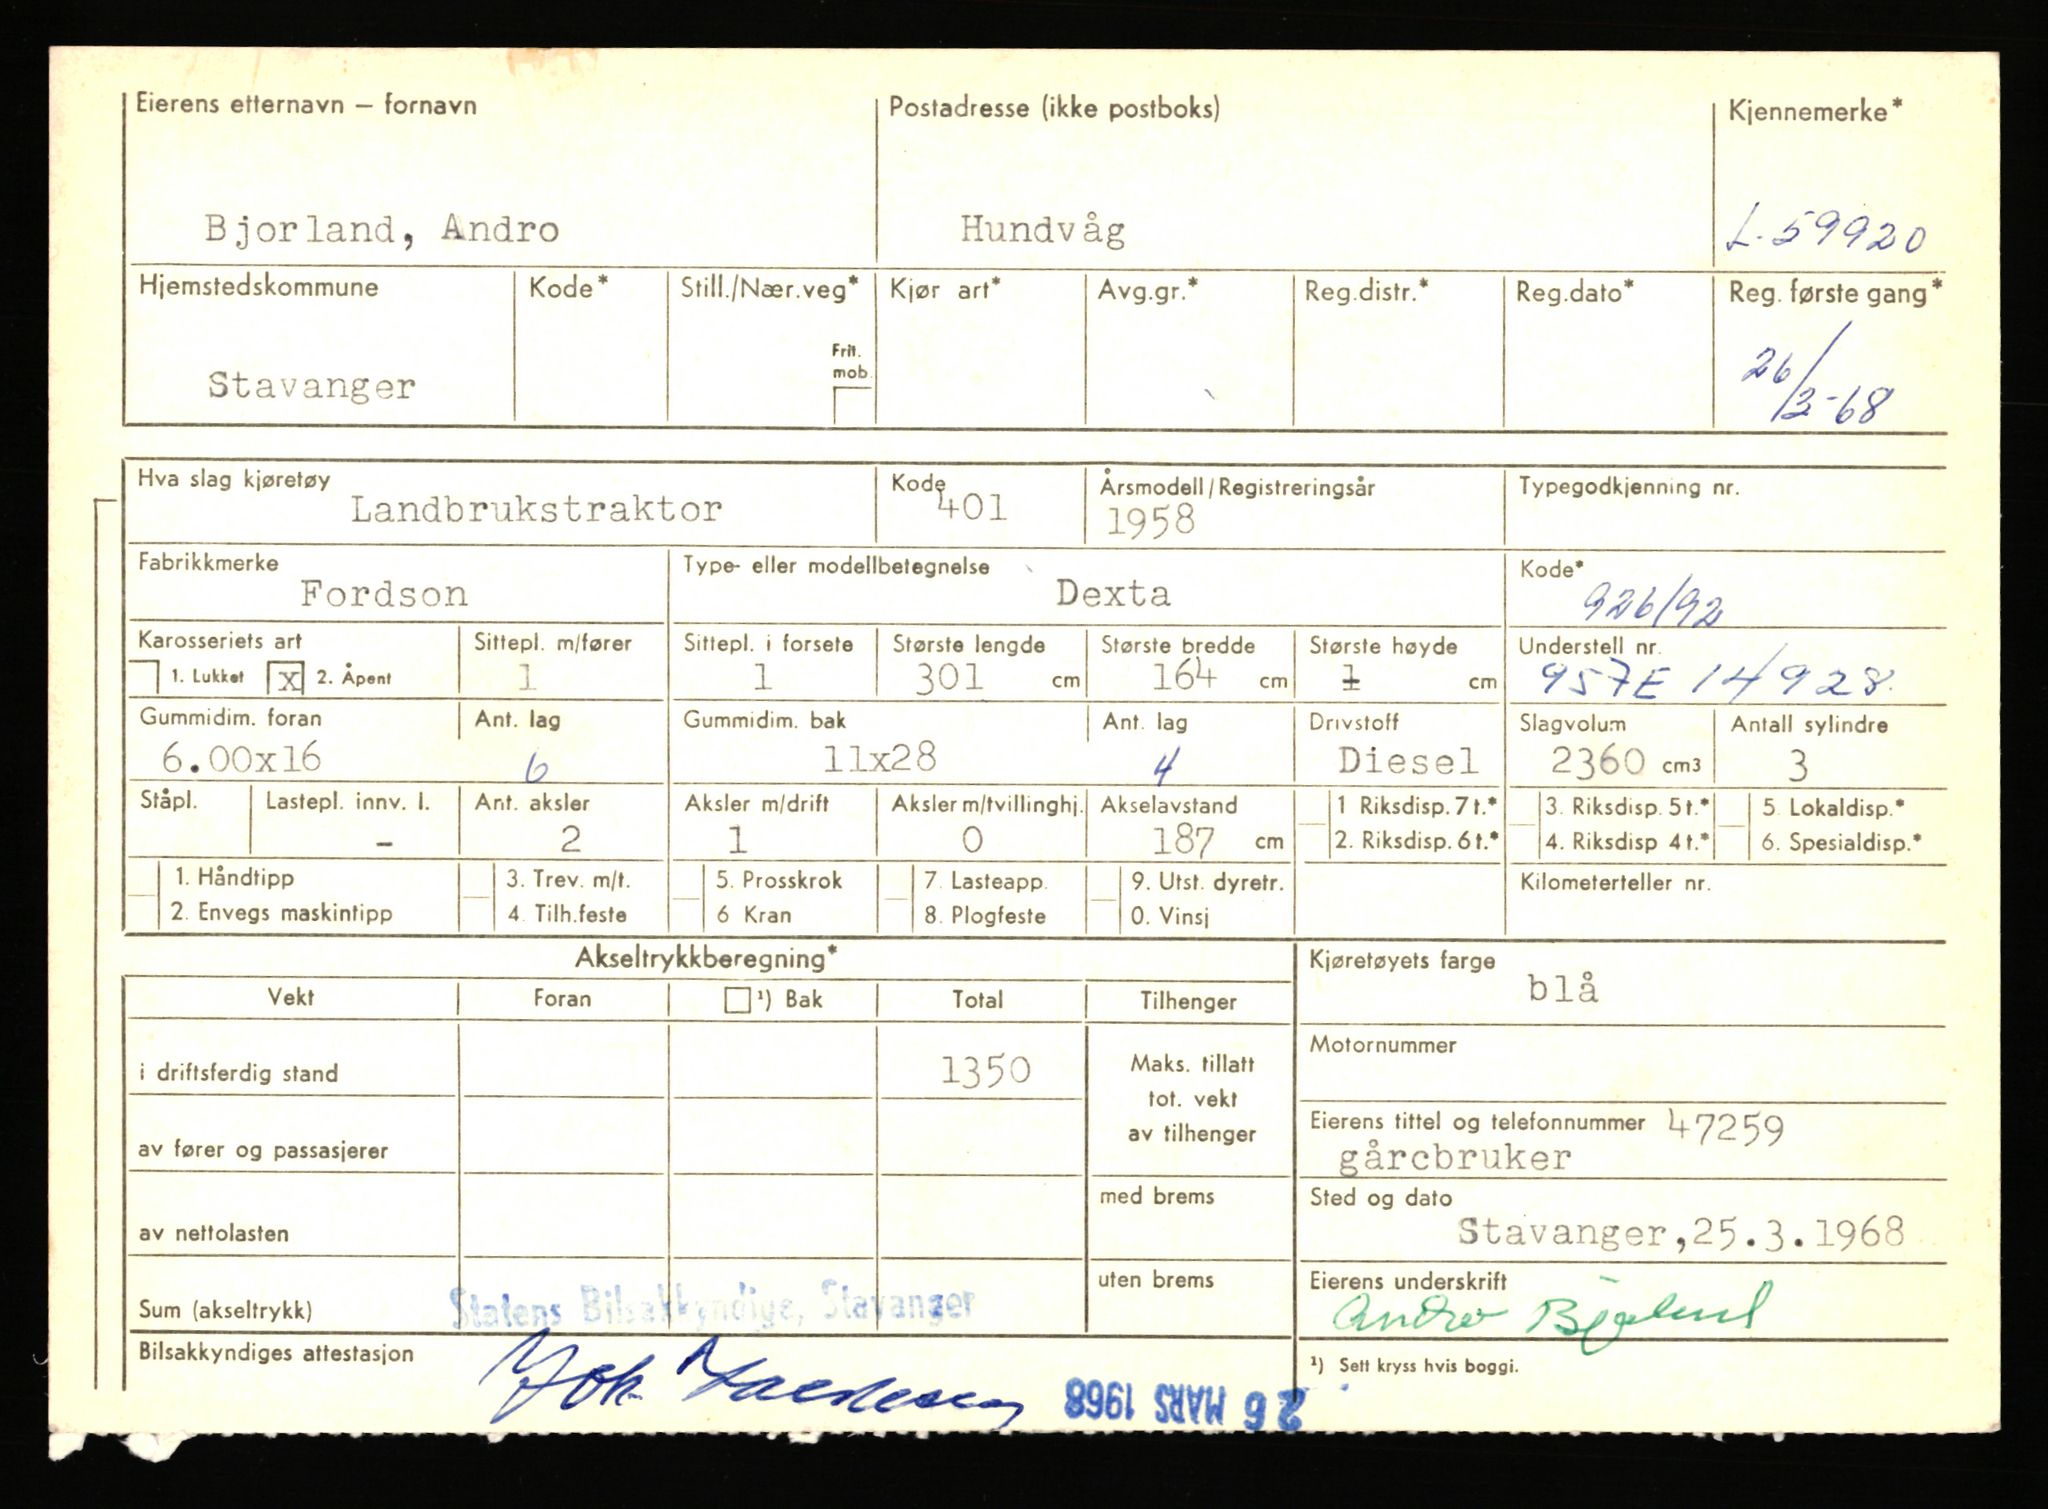 Eierens etternavn – fornavn Postadresse (ikke postboks) Kjennemerke*
Bjorland, Andro Hundvåg L-59920
Hjemstedskommune Kode* Still./Nær.veg* Kjør art* Avg.gr.* Reg.distr.* Reg.dato* Reg. første gang*
Frit.
mob.
Stavanger 26/3-68
Hva slag kjøretøy Kode Årsmodell/Registreringsår Typegodkjenning nr.
Landbrukstraktor 401 1958
Fabrikkmerke Type- eller modellbetegnelse Kode*
Fordson Dexta 926/92
Karosseriets art Sittepl. m/fører Sittepl. i forsete Største lengde Største bredde Største høyde Understell nr.
1. Lukket x 2. Åpent 1 1 301 cm 164 cm 1 cm 957E 14928.
Gummidim. foran Ant. lag Gummidim. bak Ant. lag Drivstoff Slagvolum Antall sylindre
6.00x16 6 11x28 4 Diesel 2360 cm3 3
Ståpl. Lastepl. innv. l. Ant. aksler Aksler m/drift Aksler m/tvillinghj. Akselavstand 1 Riksdisp. 7 t.* 3. Riksdisp. 5 t.* 5. Lokaldisp.*
- 2 1 0 187 cm 2. Riksdisp. 6 t.* 4. Riksdisp 4 t.* 6. Spesialdisp.*
1. Håndtipp 3. Trev. m/t. 5. Prosskrok 7. Lasteapp. 9. Utst. dyretr. Kilometerteller nr.
2. Envegs maskintipp 4. Tilh.feste 6 Kran 8. Plogfeste 0. Vinsj
Akseltrykkberegning* Kjøretøyets farge
blå
Vekt Foran ¹) Bak Total Tilhenger
i driftsferdig stand 1350 Maks. tillatt
tot. vekt
av tilhenger
Motornummer
av fører og passasjerer
Eierens tittel og telefonnummer 47259
gårcbruker
med brems Sted og dato
av nettolasten Stavanger,25.3.1968
uten brems Eierens underskrift
Sum (akseltrykk) Statens Bilsakkyndige, Stavanger Andro Bjorland
Bilsakkyndiges attestasjon ¹) Sett kryss hvis boggi.
26 MARS 1968